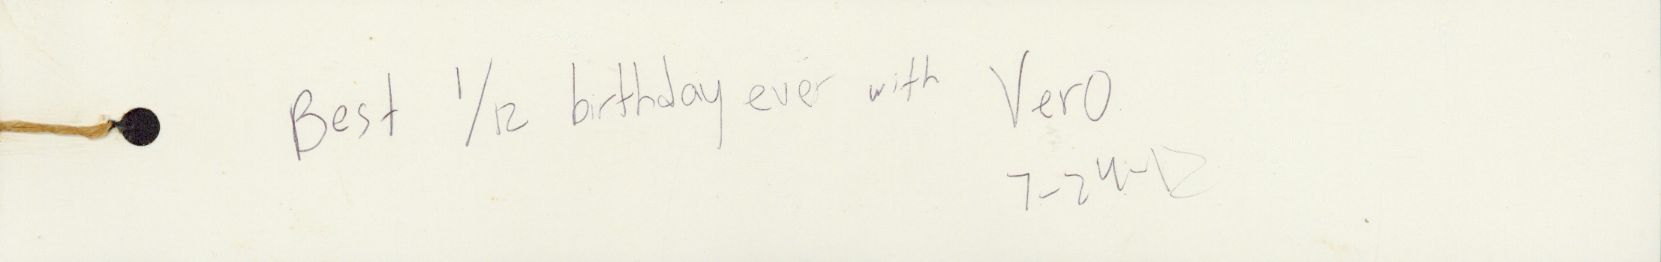 Best 1/12 birthday ever with Vero
7-24-12